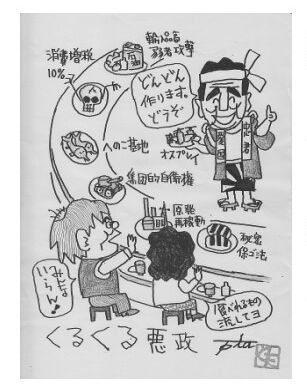 消費増税
10%
弱者攻撃
どんどん
作ります。
どうぞ
へのこ基地
オスプレイ
愛国
忠君
集団的自衛権
原発
再稼動
秘密
保ゴ法
みんな
いらん!
食べれるもの
流してヨ
くるくる悪政